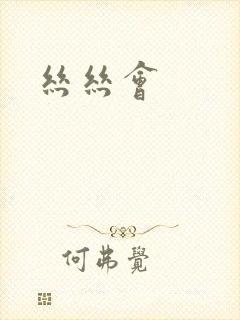 絲絲會
何弗覺